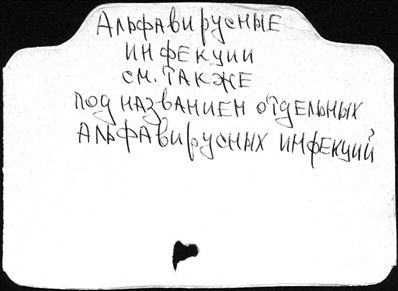 Альфавирусные
инфекции
см. также
под названием отдельных
альфавирусных инфекций